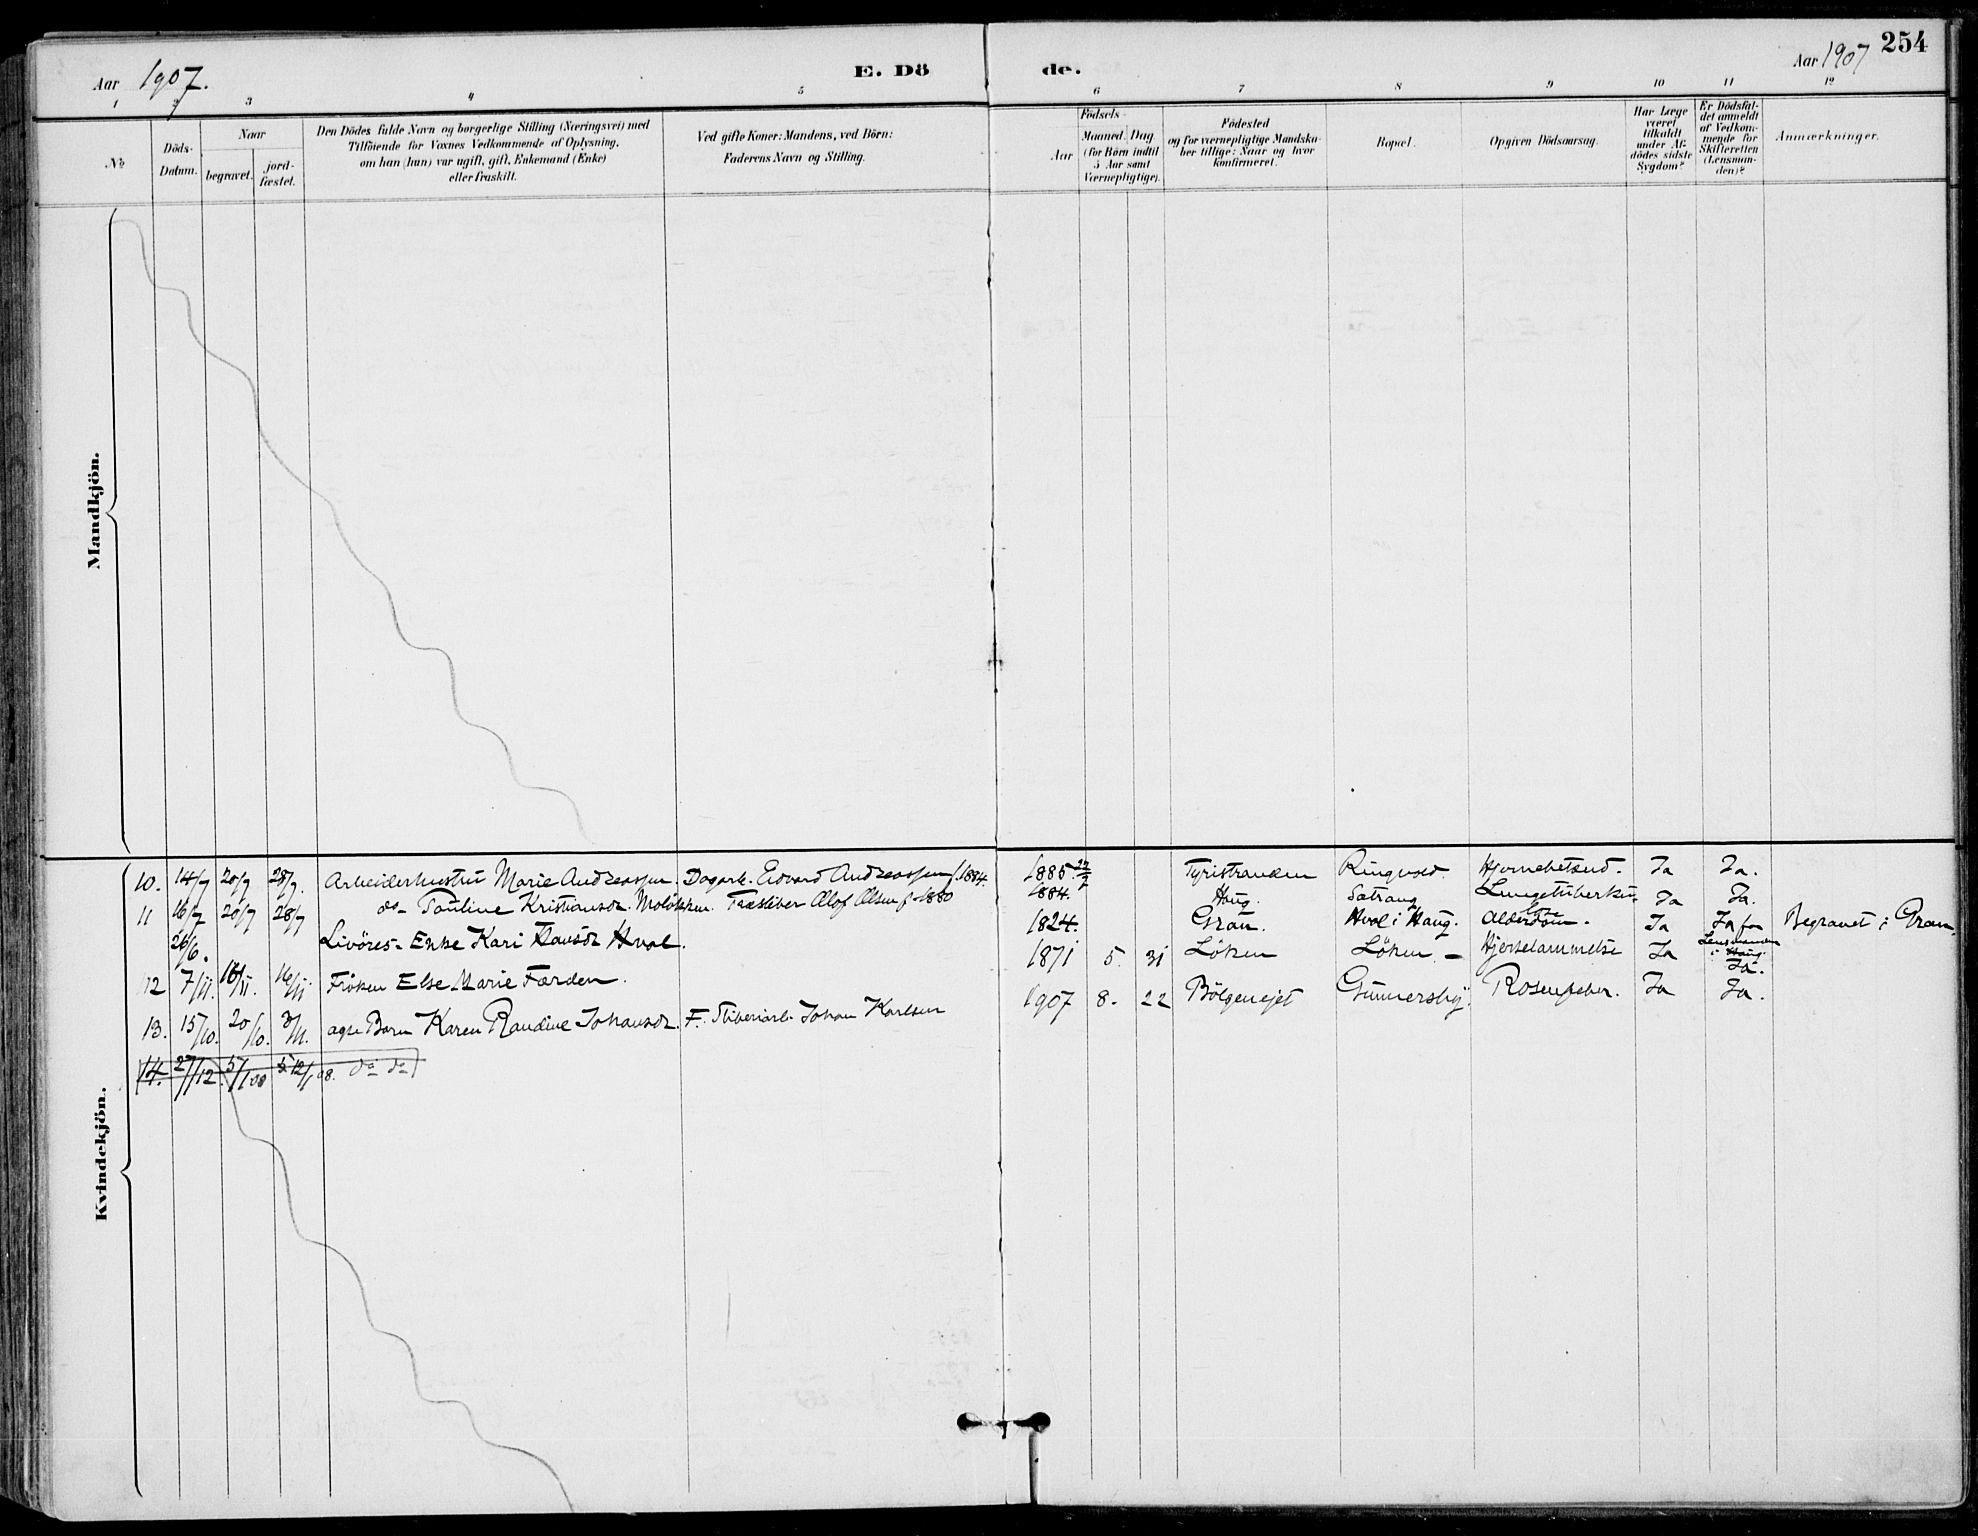 Aar 1907.
E. Dö
de.
Aar 1907
254
1 2 3 4 5 6 7 8 9 10 11 12
No
Döds-Datum.
Naar
begravet.
jord-fæstet.
Den Dödes fulde Navn og borgerlige Stilling (Næringsvei) med
Tilföiende for Voxnes Vedkommende af Oplysning,
om han (hun) var ugift, gift, Enkemand (Enke)
eller fraskilt.
Ved gifte Koner: Mandens, ved Börn:
Faderens Navn og Stilling.
Födsels-
Aar
Maaned. Dag
(for Börn indtil
5 Aar samt
Værnepligtige).
Födested
og for værnepligtige Mandska-
ber tillige: Naar og hvor
konfirmeret.
Bopæl.
Opgiven Dödsaarsag.
Har Læge
været
tilkaldt
under Af-
dödes sidste
Sygdom?
Er Dödsfal-
det anmeldt
af Vedkom-
mende for
Skifteretten
(Lensman-
den)?
Anmærkninger.
Mandkjön.
Kvindekjön.
10. 14/7 20/7 28/7. Arbeiderhustru Marie Andreassen. Dagarb. Edvard Andreassen f. 1884. 1885 Tyristranden Ringvold. Ja Ja.
11 16/7 20/7 28/7 do- Pauline Kristiansdr. Moløkken. Træsliber Olof Olsen f. 1880 1884. Haug. Satrang Lungetuberku- Ja Ja.
26/6. Livöres- Enke Kari Hansdr Hval. 1824. Gran. Hval i Haug. Alderdom. Ja Ja for Lensmanden i Haug. Begravet i Gran.
12 7/11. 16/11. 16/11 Fröken Else Marie Færden. 1871 5. 31 Löken Löken. - Hjertelammelse Ja Ja.
13. 15/10. 20/10. 3/11. ægte Barn Karen Randine Johansdr. F. Sliberiarb. Johan Karlsen 1907 8. 22 Bölgenejet Gunnersby. Ja Ja.
14. 27/12 5/1 08 12/1 08. do do